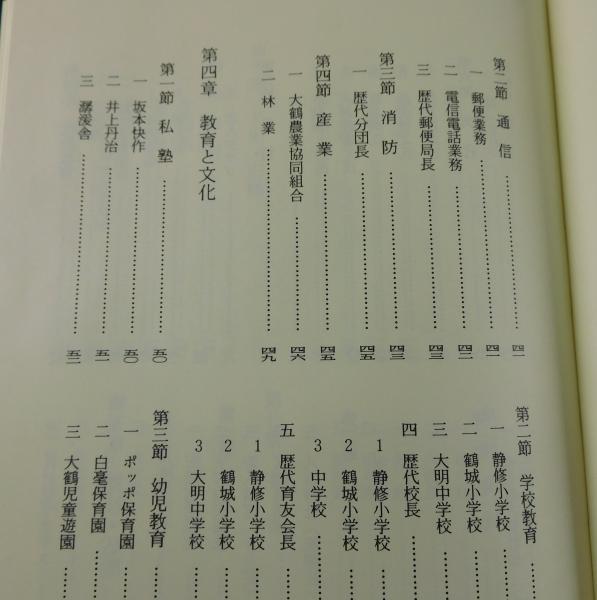 第二節 通信 …… 四一
一 郵便業務 …… 四一
二 電信電話業務 …… 四二
三 歴代郵便局長 …… 四三
第三節 消防 …… 四三
一 歴代分団長 …… 四五
第四節 産業 …… 四五
一 大鶴農業協同組合 …… 四六
二 林業 …… 四九
第四章 教育と文化
第一節 私塾 …… 五〇
一 坂本快作 …… 五〇
二 井上丹治 …… 五一
三 潺湲舎 …… 五二
第二節 学校教育 ……
一 静修小学校 ……
二 鶴城小学校 ……
三 大明中学校 ……
四 歴代校長 ……
1 静修小学校 ……
2 鶴城小学校 ……
3 中学校 ……
五 歴代育友会長 ……
1 静修小学校 ……
2 鶴城小学校 ……
3 大明中学校 ……
第三節 幼児教育 ……
一 ポッポ保育園 ……
二 白毫保育園 ……
三 大鶴児童遊園 ……